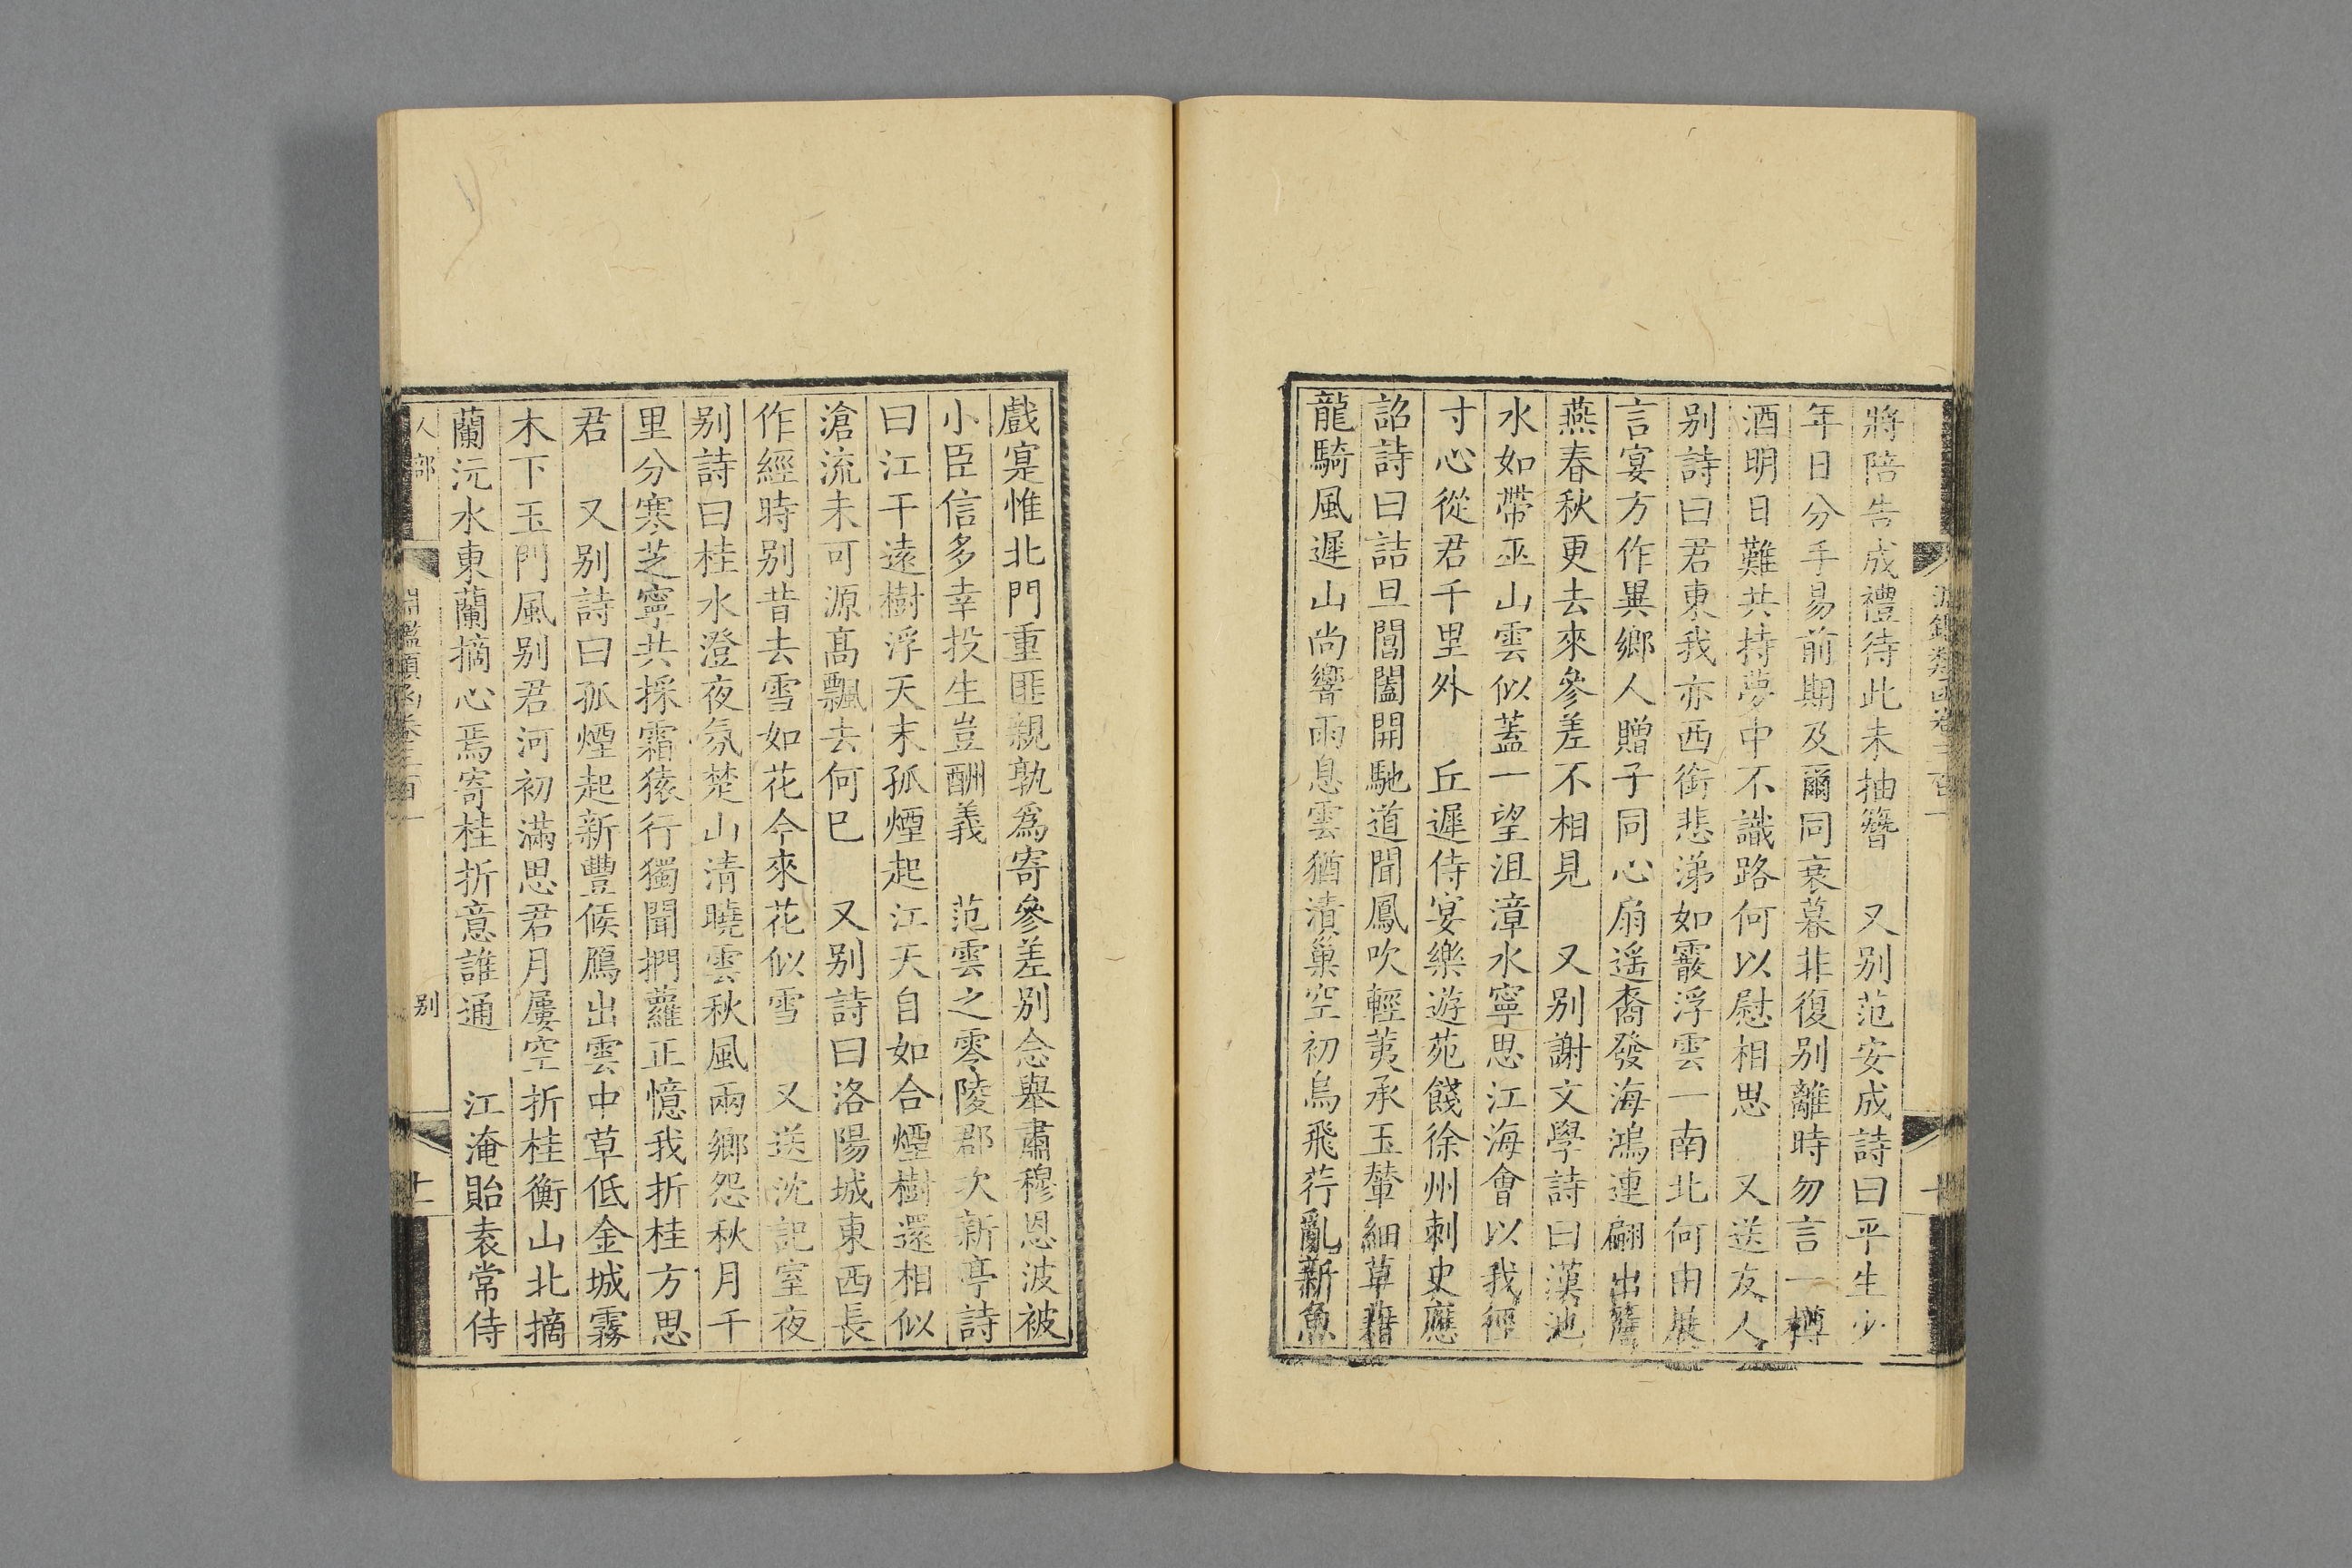 將陪告成禮待此未抽簪 又别范安成詩曰平生少
年日分手易前期及爾同衰暮非復别離時勿言一樽
酒明日難共持夢中不識路何以慰相思 又送友人
别詩曰君東我亦西銜悲涕如霰浮雲一南北何由展
言宴方作異鄉人贈子同心扇遥裔發海鴻連翩出簷
燕春秋更去來參差不相見 又别謝文學詩曰漢池
水如帶巫山雲似蓋一望沮漳水寧思江海會以我徑
寸心從君千里外 丘遲侍宴樂遊苑餞徐州刺史應
詔詩曰詰旦閶闔開馳道聞鳳吹輕荑承玉輦細草藉
龍騎風遲山尚響雨息雲猶漬巢空初烏飛荇亂新魚
戲寔惟北門重匪親孰爲寄參差别念舉肅穆恩波被
小臣信多幸投生豈酬義 范雲之零陵郡次新亭詩
曰江干遠樹浮天末孤煙起江天自如合煙樹還相似
滄流未可源髙飄去何已 又别詩曰洛陽城東西長
作經時别昔去雪如花今來花似雪 又送沈記室夜
别詩曰桂水澄夜氛楚山清曉雲秋風兩鄉怨秋月千
里分寒芝寧共採霜猿行獨聞捫蘿正憶我折桂方思
君 又别詩曰孤煙起新豐候鴈出雲中草低金城霧
木下玉門風别君河初滿思君月屢空折桂衡山北摘
蘭沅水東蘭摘心焉寄桂折意誰通 江淹貽袁常侍
人部 淵鑑類函卷三百一 别 十一